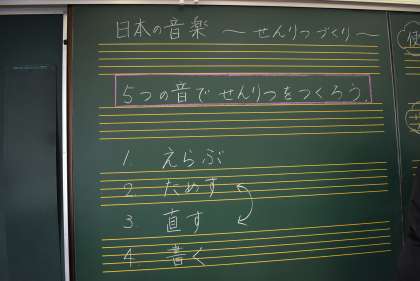 日本の音楽 〜せんりつづくり〜
5つの音でせんりつをつくろう.
1. えらぶ
2. ためす
3. 直す
4. 書く